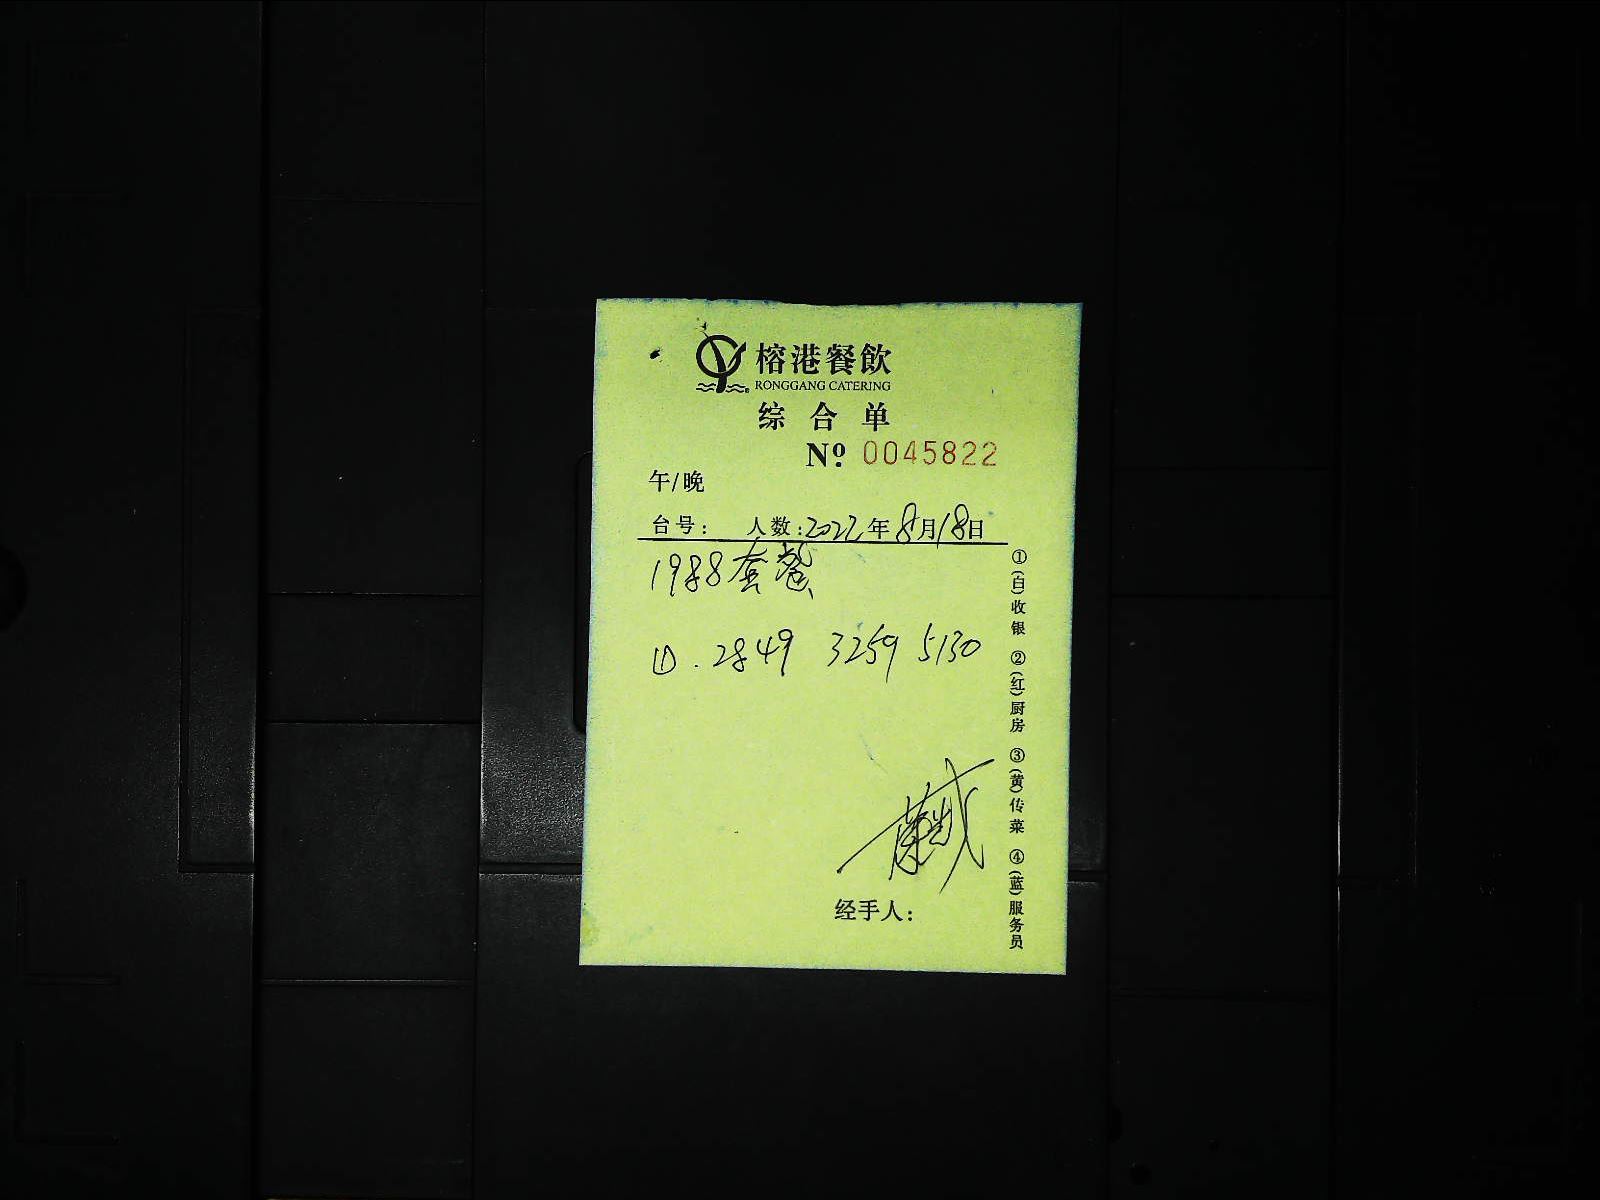 榕港餐飲
RONGGANG CATERING
综合单
Nº 0045822
午/晚
台号: 人数: 2022年8月18日
1988套餐
ID. 2849 3259 5130
经手人:
①(白)收银 ②(红)厨房 ③(黄)传菜 ④(蓝)服务员